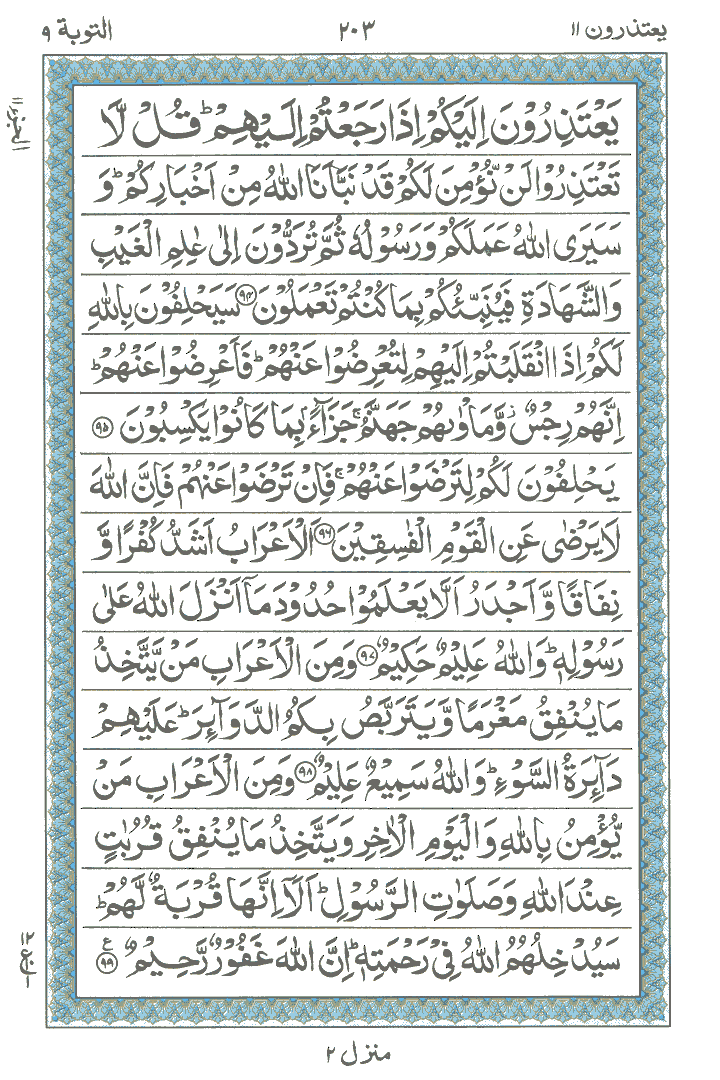 يعتذرون ١١
٢٠٣
التوبة ٩
الجزو ١١
يَعْتَذِرُوْنَ اِلَيْكُمْ اِذَا رَجَعْتُمْ اِلَيْهِمْ ؕ قُلْ لَّا
تَعْتَذِرُوْا لَنْ نُّؤْمِنَ لَكُمْ قَدْ نَبَّاَنَا اللّٰهُ مِنْ اَخْبَارِكُمْ ؕ وَ
سَيَرَى اللّٰهُ عَمَلَكُمْ وَرَسُوْلُهٗ ثُمَّ تُرَدُّوْنَ اِلٰى عٰلِمِ الْغَيْبِ
وَالشَّهَادَةِ فَيُنَبِّئُكُمْ بِمَا كُنْتُمْ تَعْمَلُوْنَ ﴿۹۴﴾ سَيَحْلِفُوْنَ بِاللّٰهِ
لَكُمْ اِذَا انْقَلَبْتُمْ اِلَيْهِمْ لِتُعْرِضُوْا عَنْهُمْ ؕ فَاَعْرِضُوْا عَنْهُمْ ؕ
اِنَّهُمْ رِجْسٌ ؗ وَّمَاْوٰىهُمْ جَهَنَّمُ ۚ جَزَآءًۢ بِمَا كَانُوْا يَكْسِبُوْنَ ﴿۹۵﴾
يَحْلِفُوْنَ لَكُمْ لِتَرْضَوْا عَنْهُمْ ۚ فَاِنْ تَرْضَوْا عَنْهُمْ فَاِنَّ اللّٰهَ
لَا يَرْضٰى عَنِ الْقَوْمِ الْفٰسِقِيْنَ ﴿۹۶﴾ اَلْاَعْرَابُ اَشَدُّ كُفْرًا وَّ
نِفَاقًا وَّاَجْدَرُ اَلَّا يَعْلَمُوْا حُدُوْدَ مَاۤ اَنْزَلَ اللّٰهُ عَلٰى
رَسُوْلِهٖ ؕ وَاللّٰهُ عَلِيْمٌ حَكِيْمٌ ﴿۹۷﴾ وَمِنَ الْاَعْرَابِ مَنْ يَّتَّخِذُ
مَا يُنْفِقُ مَغْرَمًا وَّيَتَرَبَّصُ بِكُمُ الدَّوَآئِرَ ؕ عَلَيْهِمْ
دَآئِرَةُ السَّوْءِ ؕ وَاللّٰهُ سَمِيْعٌ عَلِيْمٌ ﴿۹۸﴾ وَمِنَ الْاَعْرَابِ مَنْ
يُّؤْمِنُ بِاللّٰهِ وَالْيَوْمِ الْاٰخِرِ وَيَتَّخِذُ مَا يُنْفِقُ قُرُبٰتٍ
عِنْدَ اللّٰهِ وَصَلَوٰتِ الرَّسُوْلِ ؕ اَلَاۤ اِنَّهَا قُرْبَةٌ لَّهُمْ ؕ
سَيُدْخِلُهُمُ اللّٰهُ فِيْ رَحْمَتِهٖ ؕ اِنَّ اللّٰهَ غَفُوْرٌ رَّحِيْمٌ ﴿۹۹﴾ ع
منزل ٢